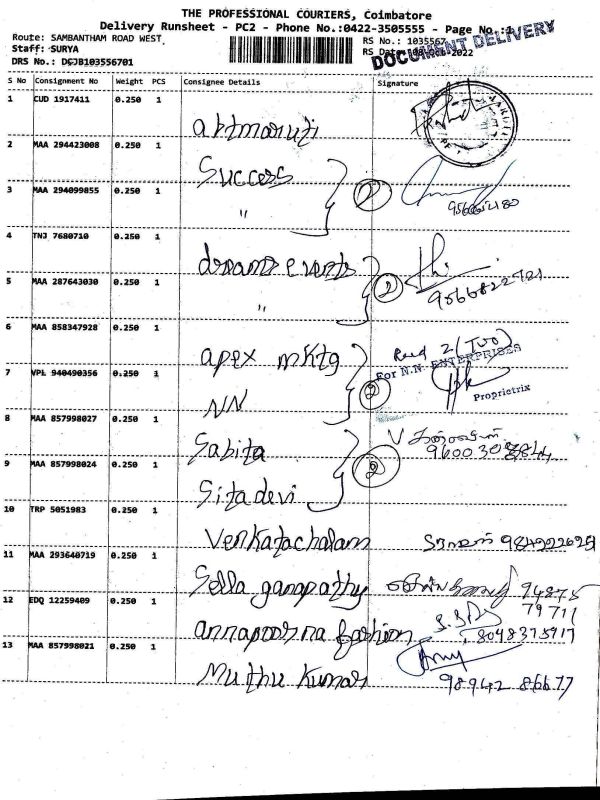 THE PROFESSIONAL COURIERS, Coimbatore
Delivery Runsheet - PC2 - Phone No.:0422-3505555 - Page No.:1
Route: SAMBANTHAM ROAD WEST RS No.: 1035567
Staff: SURYA RS Date: -Oct-2022
DOCUMENT DELIVERY
DRS No.: DGJB103556701
S No Consignment No Weight PCS Consignee Details Signature
1 CUD 1917411 0.250 1
abtmaruti
2 MAA 294423008 0.250 1
Success
3 MAA 294099855 0.250 1
"
4 TNJ 7680710 0.250 1
dreams events
5 MAA 287643030 0.250 1
9566822721
"
6 MAA 858347928 0.250 1
apex mktg Recd 2 (Two)
For N.N. ENTERPRISES
7 VPL 940490356 0.250 1
Proprietrix
NN
8 MAA 857998027 0.250 1
Sabita
9 MAA 857998024 0.250 1
Sitadevi
10 TRP 5051983 0.250 1
Venkatachalam
11 MAA 293640719 0.250 1
Sella ganapathy 94875
79711
12 EDQ 12259409 0.250 1
annapoorna fashion 8048375917
13 MAA 857998021 0.250 1
Muthu Kumar 98942 86677